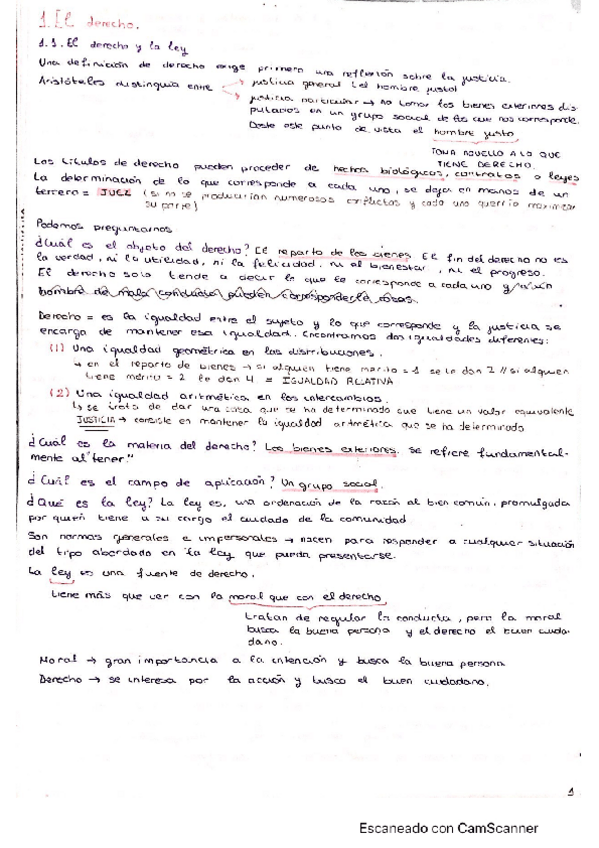 1. El derecho.
1.1. El derecho y la ley
Una definición de derecho exige primero una reflexión sobre la justicia.
Aristóteles distinguía entre → justicia general (el hombre justo)
→ justicia particular → no tomar los bienes exteriores dis-
putados en un grupo social de los que nos corresponde.
Desde este punto de vista el hombre justo
TOMA AQUELLO A LO QUE
TIENE DERECHO.
Los títulos de derecho pueden proceder de hechos biológicos, contratos o leyes
La determinación de lo que corresponde a cada uno, se deja en manos de un
tercero = JUEZ (si no se producirían numerosos conflictos y cada uno querría maximizar
su parte)
Podemos preguntarnos
¿Cuál es el objeto del derecho? El reparto de los bienes. El fin del derecho no es
la verdad, ni la utilidad, ni la felicidad, ni el bienestar, ni el progreso.
El derecho solo tende a decir lo que le corresponde a cada uno y aún
hombre de mala conducta pueden corresponderle cosas.
Derecho = es la igualdad entre el sujeto y lo que corresponde y la justicia se
encarga de mantener esa igualdad. Encontramos dos igualdades diferentes:
(1) Una igualdad geométrica en las distribuciones.
→ en el reparto de bienes → si alguien tiene mérito = 1 se le dan 2 // si alguien
tiene mérito = 2 le dan 4 = IGUALDAD RELATIVA
(2) Una igualdad aritmética en los intercambios.
↳ se trata de dar una cosa que se ha determinado que tiene un valor equivalente
JUSTICIA → consiste en mantener la igualdad aritmética que se ha determinado
¿Cuál es la materia del derecho? Los bienes exteriores. se refiere fundamental-
mente al "tener."
¿Cuál es el campo de aplicación? Un grupo social.
¿Qué es la ley? La ley es, una ordenación de la razón al bien común, promulgada
por quien tiene a su cargo el cuidado de la comunidad
Son normas generales e impersonales → nacen para responder a cualquier situación
del tipo abordado en la ley que pueda presentarse.
La ley es una fuente de derecho.
tiene más que ver con la moral que con el derecho
tratan de regular la conducta, pero la moral
busca la buena persona y el derecho el buen ciuda-
dano.
Moral → gran importancia a la intención y busca la buena persona
Derecho → se interesa por la acción y busca el buen ciudadano.
1
Escaneado con CamScanner